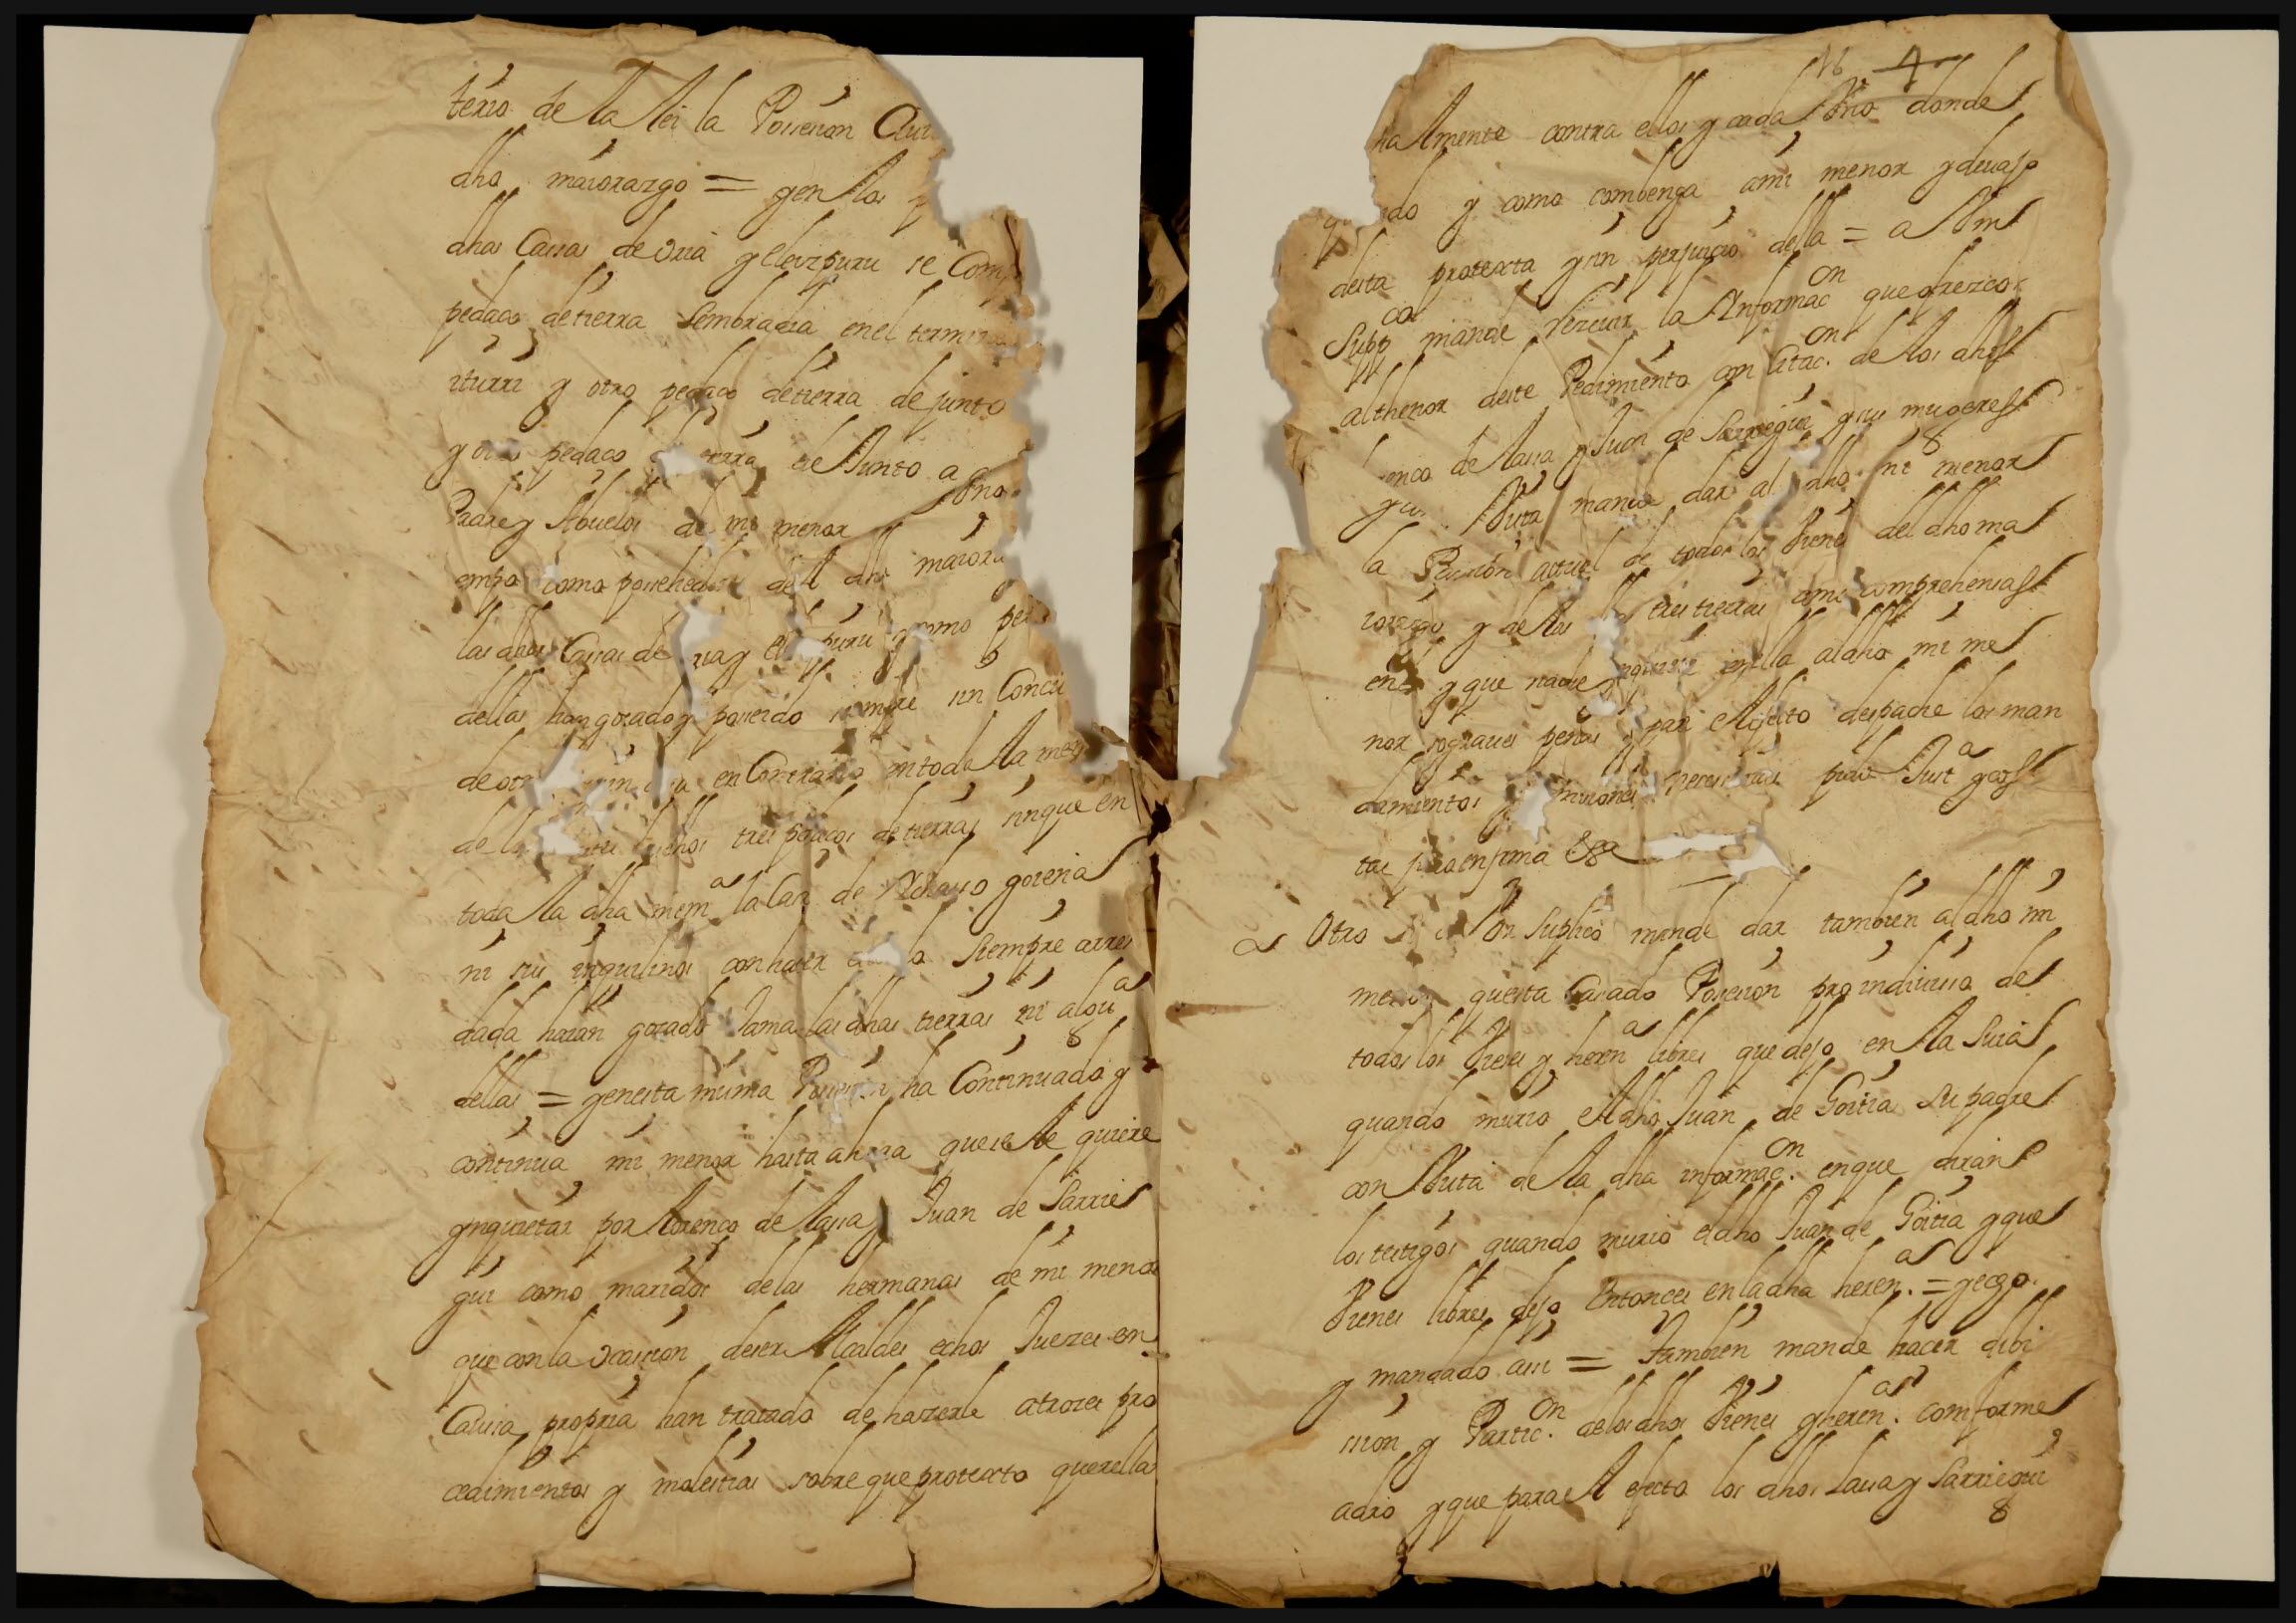 terio de la lei la Possesion Ciui
dho maiorazgo = y en los
dhas Cassas de Oria y Eleizpuru se Comp
pedaço de tierra Sembradia en el termi
iturri y otro pedaço de tierra de junto
y otro pedaço tierra de Junto a
Padre y Abuelos de mi menor Vno
empo como posehedores del dho maiora
las dhas Cassas de ria y puru y como pe
dellas han gozado y posseido siempre sin Contra
de otr en Contrario ni toda la mem
de dichos tres pedaços de tierras sin que en
toda la dha mema la Cassa de goienа
ni sus inquilinos con hauer siempre arren
dada haian gozado Jamas las dhas tierras ni algua
dellas = y en esta misma Possesion ha Continuado y
continua mi menor hasta ahora que se le quiere
ynquietar por Lorenço de Lassa y Juan de Sarrie
gui como maridos de las hermanas de mi menor
que con la Ocassion de ser Alcaldes echos Juezes en
Caussa propria han tratado de hazerle atrozes pro
cedimientos y molestias sobre que protexto querella
16 4
nalmente contra ellos y cada Vno donde
do y como combenga a mi menor y deuajo
desta protexta y sin perjuicio della = a Vm
Suppco mande rezeuir la Ynformacon que ofrezco
al thenor deste Pedimiento con Citacon de los dhos
enço de Lassa y Juan de Sarriegui y sus mugeres
y Vista mande dar al dho mi menor
la Possesion actual de todos los Vienes del dho ma
iorazgo y de las tres tierras como comprehensas
en y que nadie ynquiete en ella al dho mi me
nor so graues penas y para el efecto despache los man
damientos y prouisiones necesarias pido Justa y cos
tas juro en forma &a
Otro si a Vm Suplico mande dar tambien al dho mi
menor questa Casado Possesion proindiuisa de
todos los Vienes y herena libres que dejo en la Suia
quando murio el dho Juan de Goitia su padre
con Vista de la dha informacon en que diran
los testigos quando murio el dho Juan de Goitia y que
Vienes libres dejo Entonces en la dha herena = y echo
y mandado assi = Tambien mande hacer diui
sion y Particon de los dhos Vienes y herena comforme
a dro y que para el efecto los dhos Lassa y Sarriegui